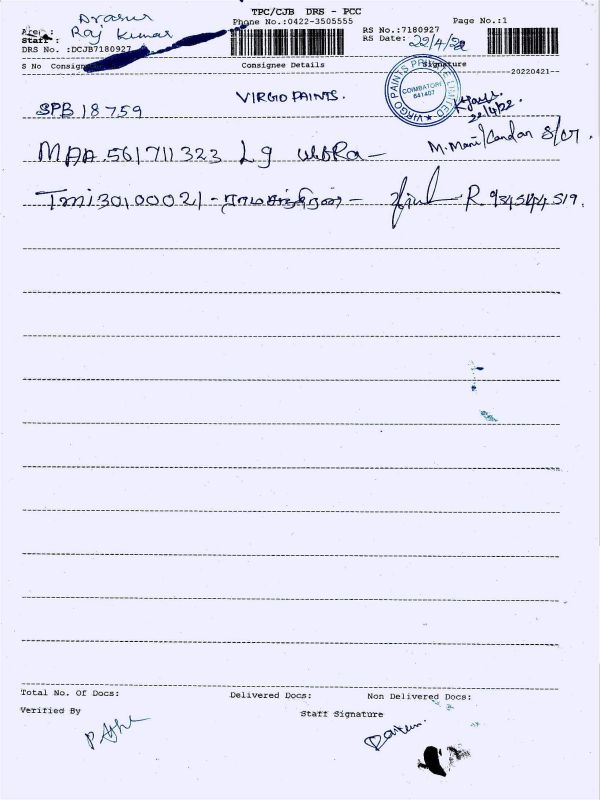 TPC/CJB DRS - PCC
Phone No.:0422-3505555
Page No.:1
Area :
Arasur
Staff :
Raj Kumar
DRS No. :DCJB7180927
RS No.:7180927
RS Date: 22/4/22
S No Consign
Consignee Details
Signature
--20220421--
SPB 18759
VIRGO PAINTS.
VIRGO PAINTS PRIVATE LIMITED
COIMBATORE
641407
22/4/22.
MAA 561711323 Lg
TMI30100021 - ராமசந்திரன் -
R.
Total No. Of Docs:
Delivered Docs:
Non Delivered Docs:
Verified By
Staff Signature